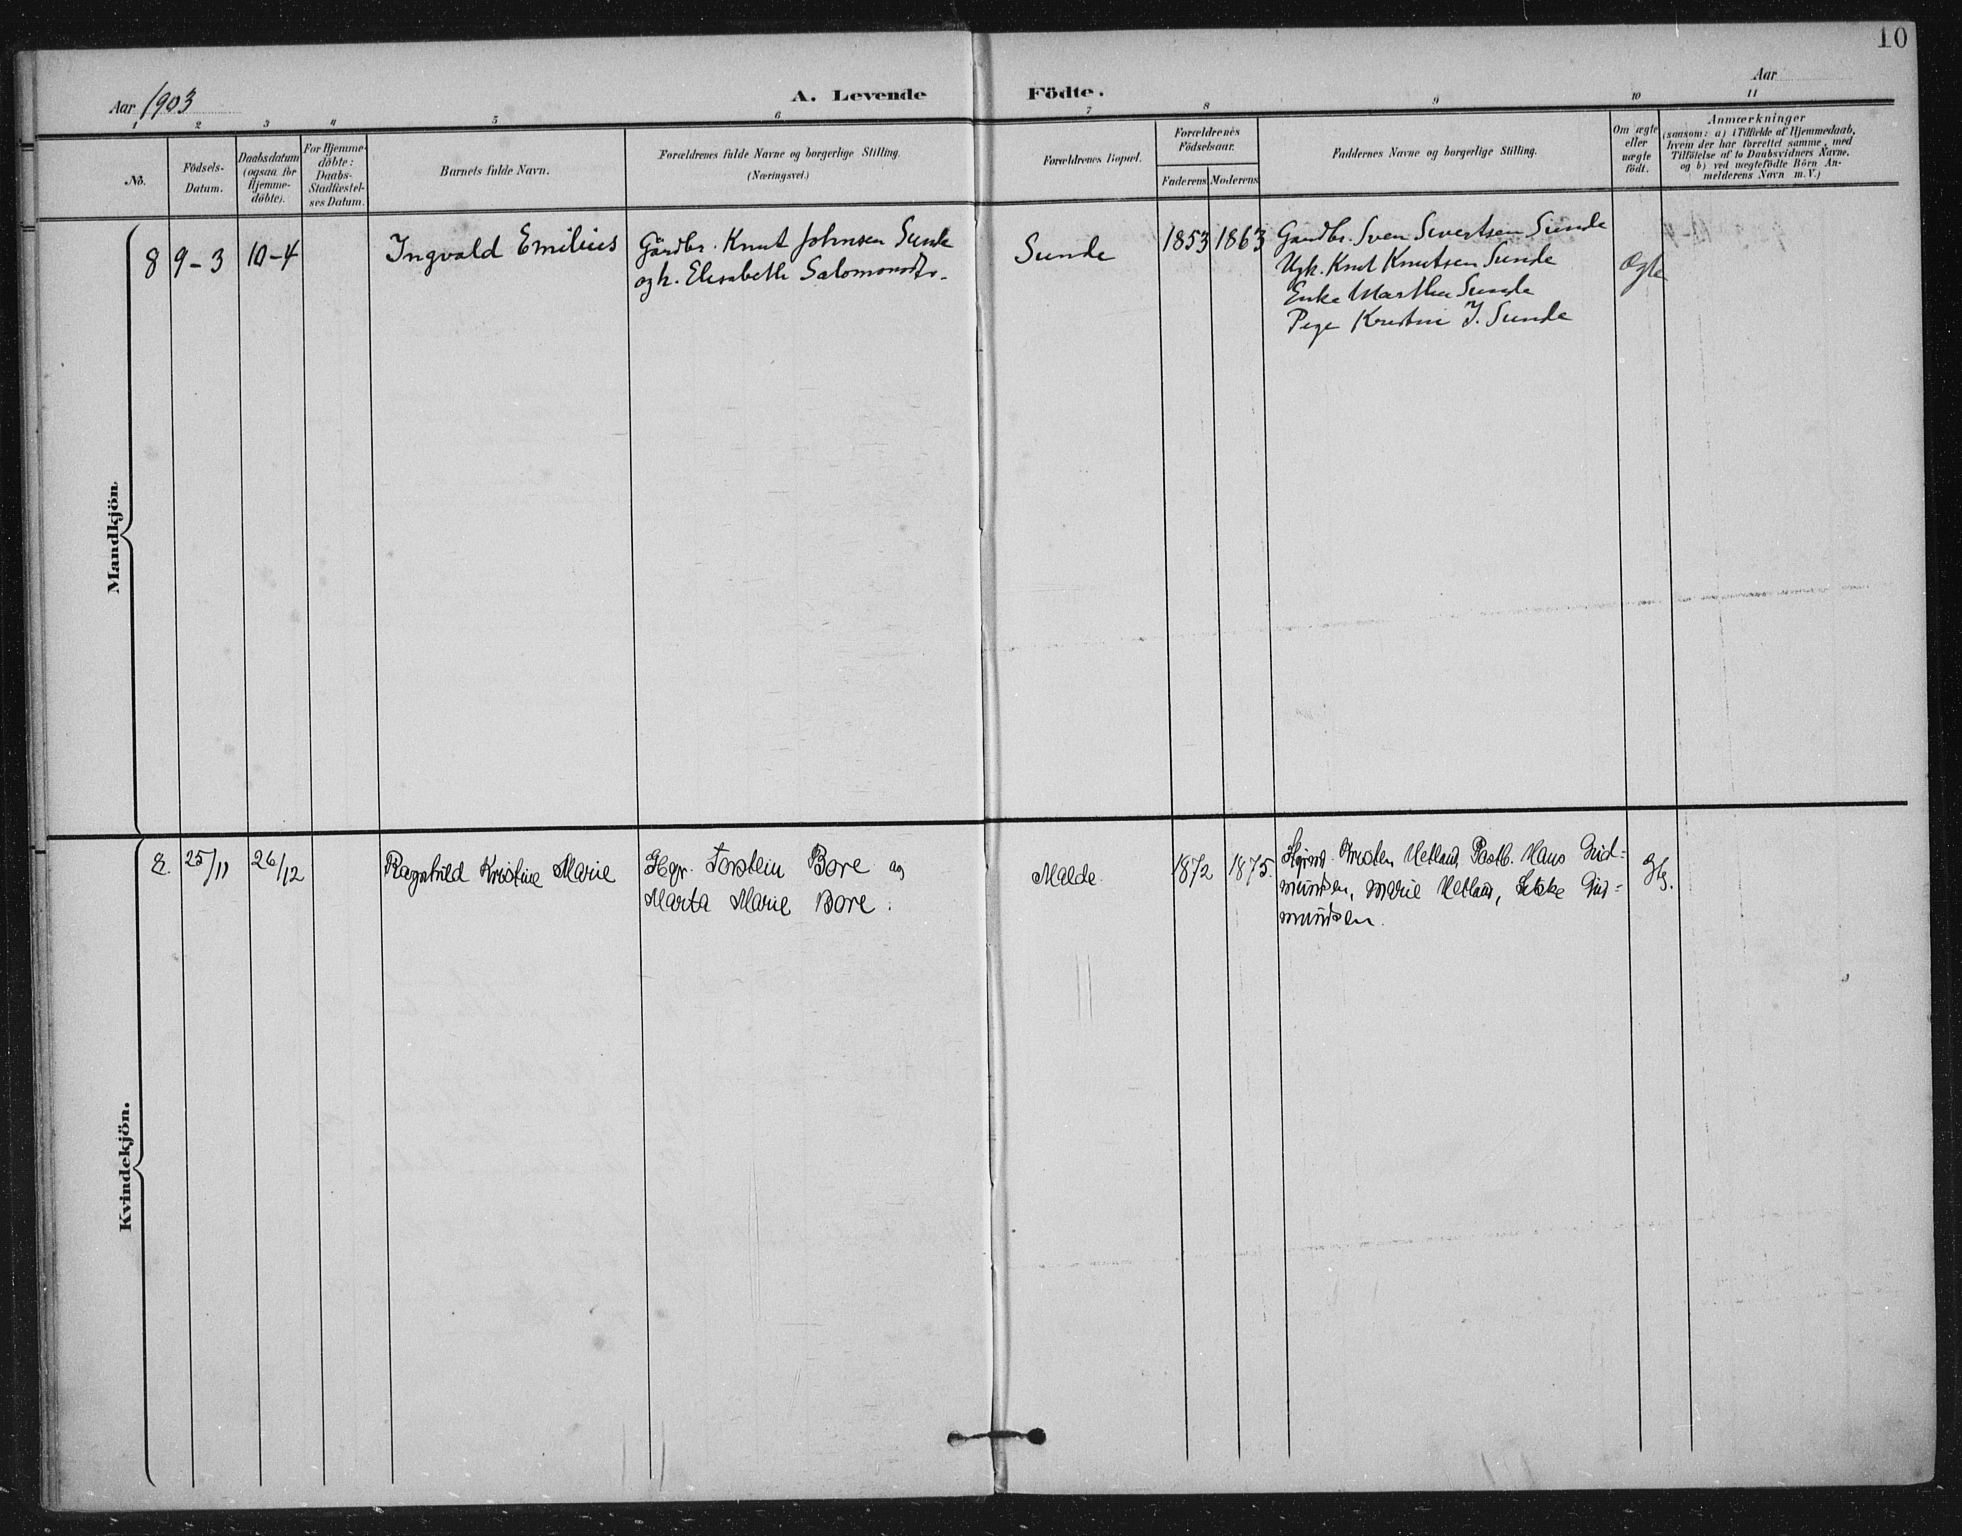 10
Aar 1903
A. Levende Födte.
Aar
1 2 3 4 5 6 7 8 9 10 11
No.
Födsels-
Datum.
Daabsdatum
(ogsaa for
Hjemme-
døbte).
For Hjemme-
döbte:
Daabs-
Stadfæstel-
ses Datum.
Barnets fulde Navn.
Forældrenes fulde Navne og borgerlige Stilling.
(Næringsvei.)
Forældrenes Bopæl.
Forældrenes
Födselsaar.
Faderens Moderens
Faddernes Navne og borgerlige Stilling.
Om ægte
eller
uægte
födt.
Anmærkninger
(saasom: a) i Tilfælde af Hjemmedaab,
hvem der har forrettet samme, med
Tilföielse af to Daabsvidners Navne,
og b) ved uægtefödte Börn An-
melderens Navn m.V.)
Mandkjön
8 9-3 10-4 Ingvald Emilius
Gårdbr. Knut Johnsen Sunde
ogh. Elisabeth Salomonsdtr.
Sunde
1853 1863
Gaardbr. Sven Sivertsen Sunde
Ugk. Knut Knutsen Sunde
Enke Martha Sunde
Pige Kristine J. Sunde
Ægte
Kvindekjön.
8. 25/11 26/12 Ragnhild Kristine Marie
Hgr. Torstein Bore og
Marta Marie Bore.
Malde.
1872 1875.
Kristen Hetland, Hans Gud-
mundsen, Marie Hetland, Gud-
mundsen.